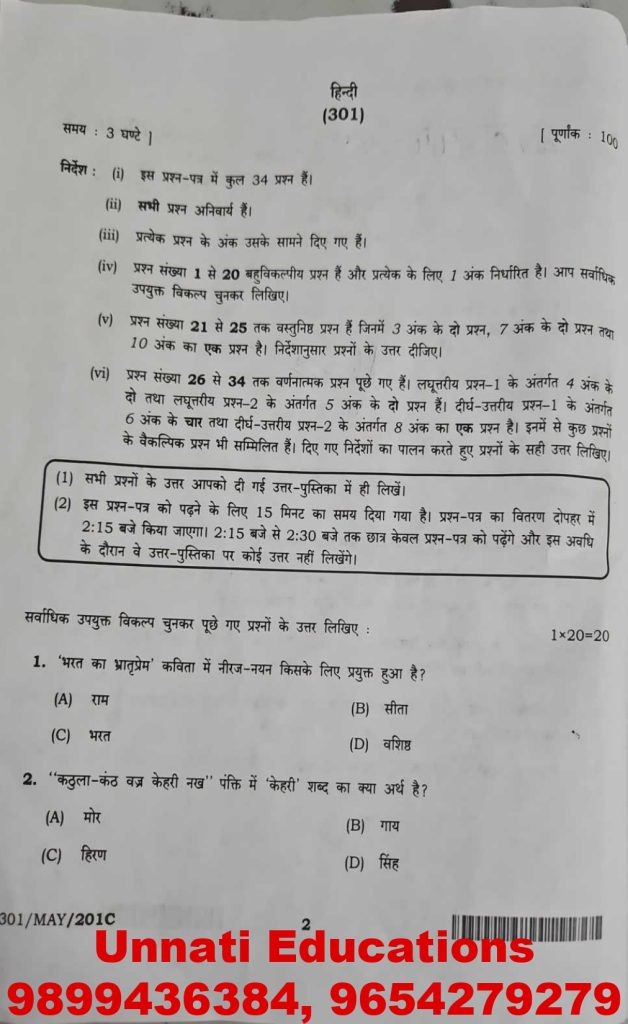 हिन्दी
(301)
समय : 3 घण्टे ]
[ पूर्णांक : 100
निर्देश : (i) इस प्रश्न-पत्र में कुल 34 प्रश्न हैं।
(ii) सभी प्रश्न अनिवार्य हैं।
(iii) प्रत्येक प्रश्न के अंक उसके सामने दिए गए हैं।
(iv) प्रश्न संख्या 1 से 20 बहुविकल्पीय प्रश्न हैं और प्रत्येक के लिए 1 अंक निर्धारित है। आप सर्वाधिक
उपयुक्त विकल्प चुनकर लिखिए।
(v) प्रश्न संख्या 21 से 25 तक वस्तुनिष्ठ प्रश्न हैं जिनमें 3 अंक के दो प्रश्न, 7 अंक के दो प्रश्न तथा
10 अंक का एक प्रश्न है। निर्देशानुसार प्रश्नों के उत्तर दीजिए।
(vi) प्रश्न संख्या 26 से 34 तक वर्णनात्मक प्रश्न पूछे गए हैं। लघूत्तरीय प्रश्न-1 के अंतर्गत 4 अंक के
दो तथा लघूत्तरीय प्रश्न-2 के अंतर्गत 5 अंक के दो प्रश्न हैं। दीर्घ-उत्तरीय प्रश्न-1 के अंतर्गत
6 अंक के चार तथा दीर्घ-उत्तरीय प्रश्न-2 के अंतर्गत 8 अंक का एक प्रश्न है। इनमें से कुछ प्रश्नों
के वैकल्पिक प्रश्न भी सम्मिलित हैं। दिए गए निर्देशों का पालन करते हुए प्रश्नों के सही उत्तर लिखिए।
(1) सभी प्रश्नों के उत्तर आपको दी गई उत्तर-पुस्तिका में ही लिखें।
(2) इस प्रश्न-पत्र को पढ़ने के लिए 15 मिनट का समय दिया गया है। प्रश्न-पत्र का वितरण दोपहर में
2:15 बजे किया जाएगा। 2:15 बजे से 2:30 बजे तक छात्र केवल प्रश्न-पत्र को पढ़ेंगे और इस अवधि
के दौरान वे उत्तर-पुस्तिका पर कोई उत्तर नहीं लिखेंगे।
सर्वाधिक उपयुक्त विकल्प चुनकर पूछे गए प्रश्नों के उत्तर लिखिए :
1×20=20
1. 'भरत का भ्रातृप्रेम' कविता में नीरज-नयन किसके लिए प्रयुक्त हुआ है?
(A) राम
(B) सीता
(C) भरत
(D) वशिष्ठ
2. "कठुला-कंठ वज्र केहरी नख" पंक्ति में 'केहरी' शब्द का क्या अर्थ है?
(A) मोर
(B) गाय
(C) हिरण
(D) सिंह
301/MAY/201C
2
Unnati Educations
9899436384, 9654279279